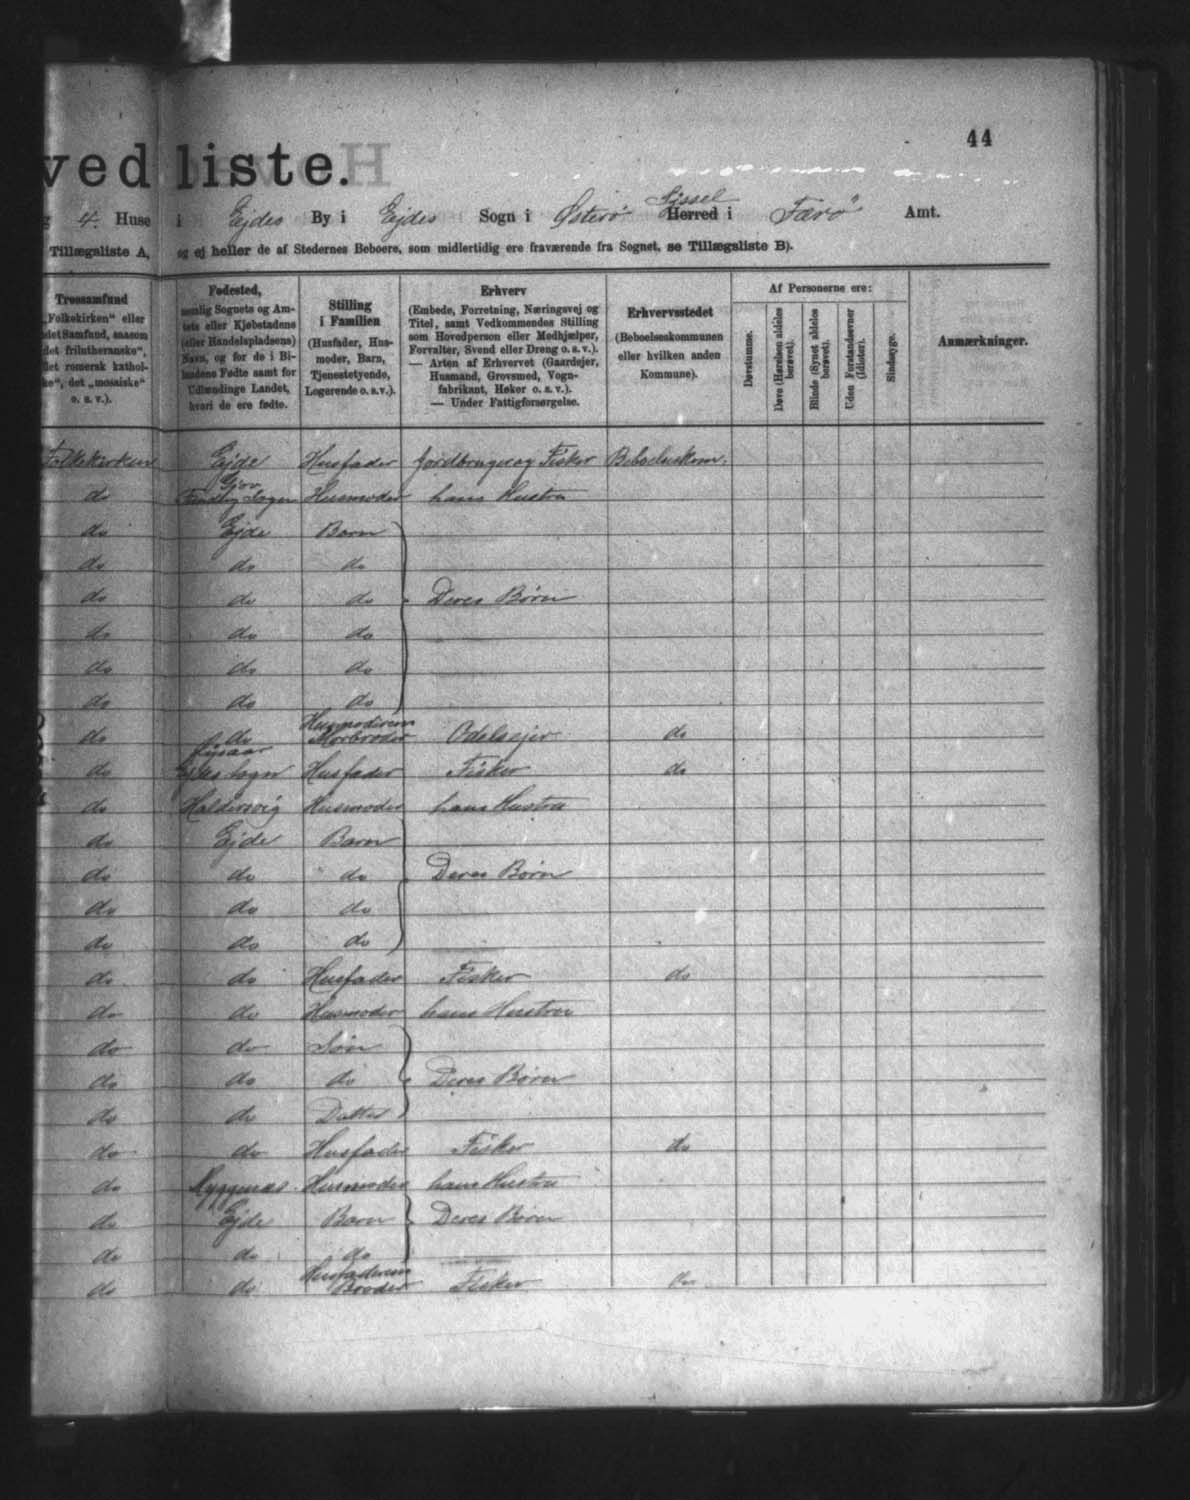 44
ved liste.
g 4. Huse i Ejdes By i Ejdes Sogn i Østerø Syssel Herred i Færø Amt.
Tillægsliste A, og ej heller de af Stedernes Beboere, som midlertidig ere fraværende fra Sognet, se Tillægsliste B).
Trossamfund
„Folkekirken“ eller
det Samfund, saasom
det frilutheranske“,
det romersk kathol-
ke“, det „mosaiske“
o. s. v.).
Fødested,
nemlig Sognets og Am-
tets eller Kjøbstadens
(eller Handelspladsens)
Navn, og for de i Bi-
landene Fødte samt for
Udlændinge Landet,
hvori de ere fødte.
Stilling
i Familien
(Husfader, Hus-
moder, Barn,
Tjenestetyende,
Logerende o. s. v.).
Erhverv
(Embede, Forretning, Næringsvej og
Titel, samt Vedkommendes Stilling
som Hovedperson eller Medhjælper,
Forvalter, Svend eller Dreng o. s. v.).
— Arten af Erhvervet (Gaardejer,
Husmand, Grovsmed, Vogn-
fabrikant, Høker o. s. v.).
— Under Fattigforsørgelse.
Erhvervsstedet
(Beboelseskommunen
eller hvilken anden
Kommune).
Af Personerne ere:
Døvstumme.
Døve (Hørelsen aldeles
berøvet).
Blinde (Synet aldeles
berøvet).
Uden Forstandsevner
(Idioter).
Sindssyge.
Anmærkninger.
Folkekirken Ejde Husfader Jordbruger og Fisker Beboelseskom.
Gjov
do Sogn Husmoder hans Hustru
do Ejde Barn
do do do
do do do Deres Børn
do do do
do do do
do do do
Husmoderens
do do Morbroder Odelsejer do
do Ejdes Sogn Husfader Fisker do
do Haldersvig Husmoder hans Hustru
do Ejde Barn
do do do Deres Børn
do do do
do do do
do do Husfader Fisker do
do do Husmoder hans Hustru
do do Søn
do do do Deres Børn
do do Datter
do do Husfader Fisker do
do Myggenæs Husmoder hans Hustru
do Ejde Barn Deres Børn
do do do
Husfaderens
do do Broder Fisker do